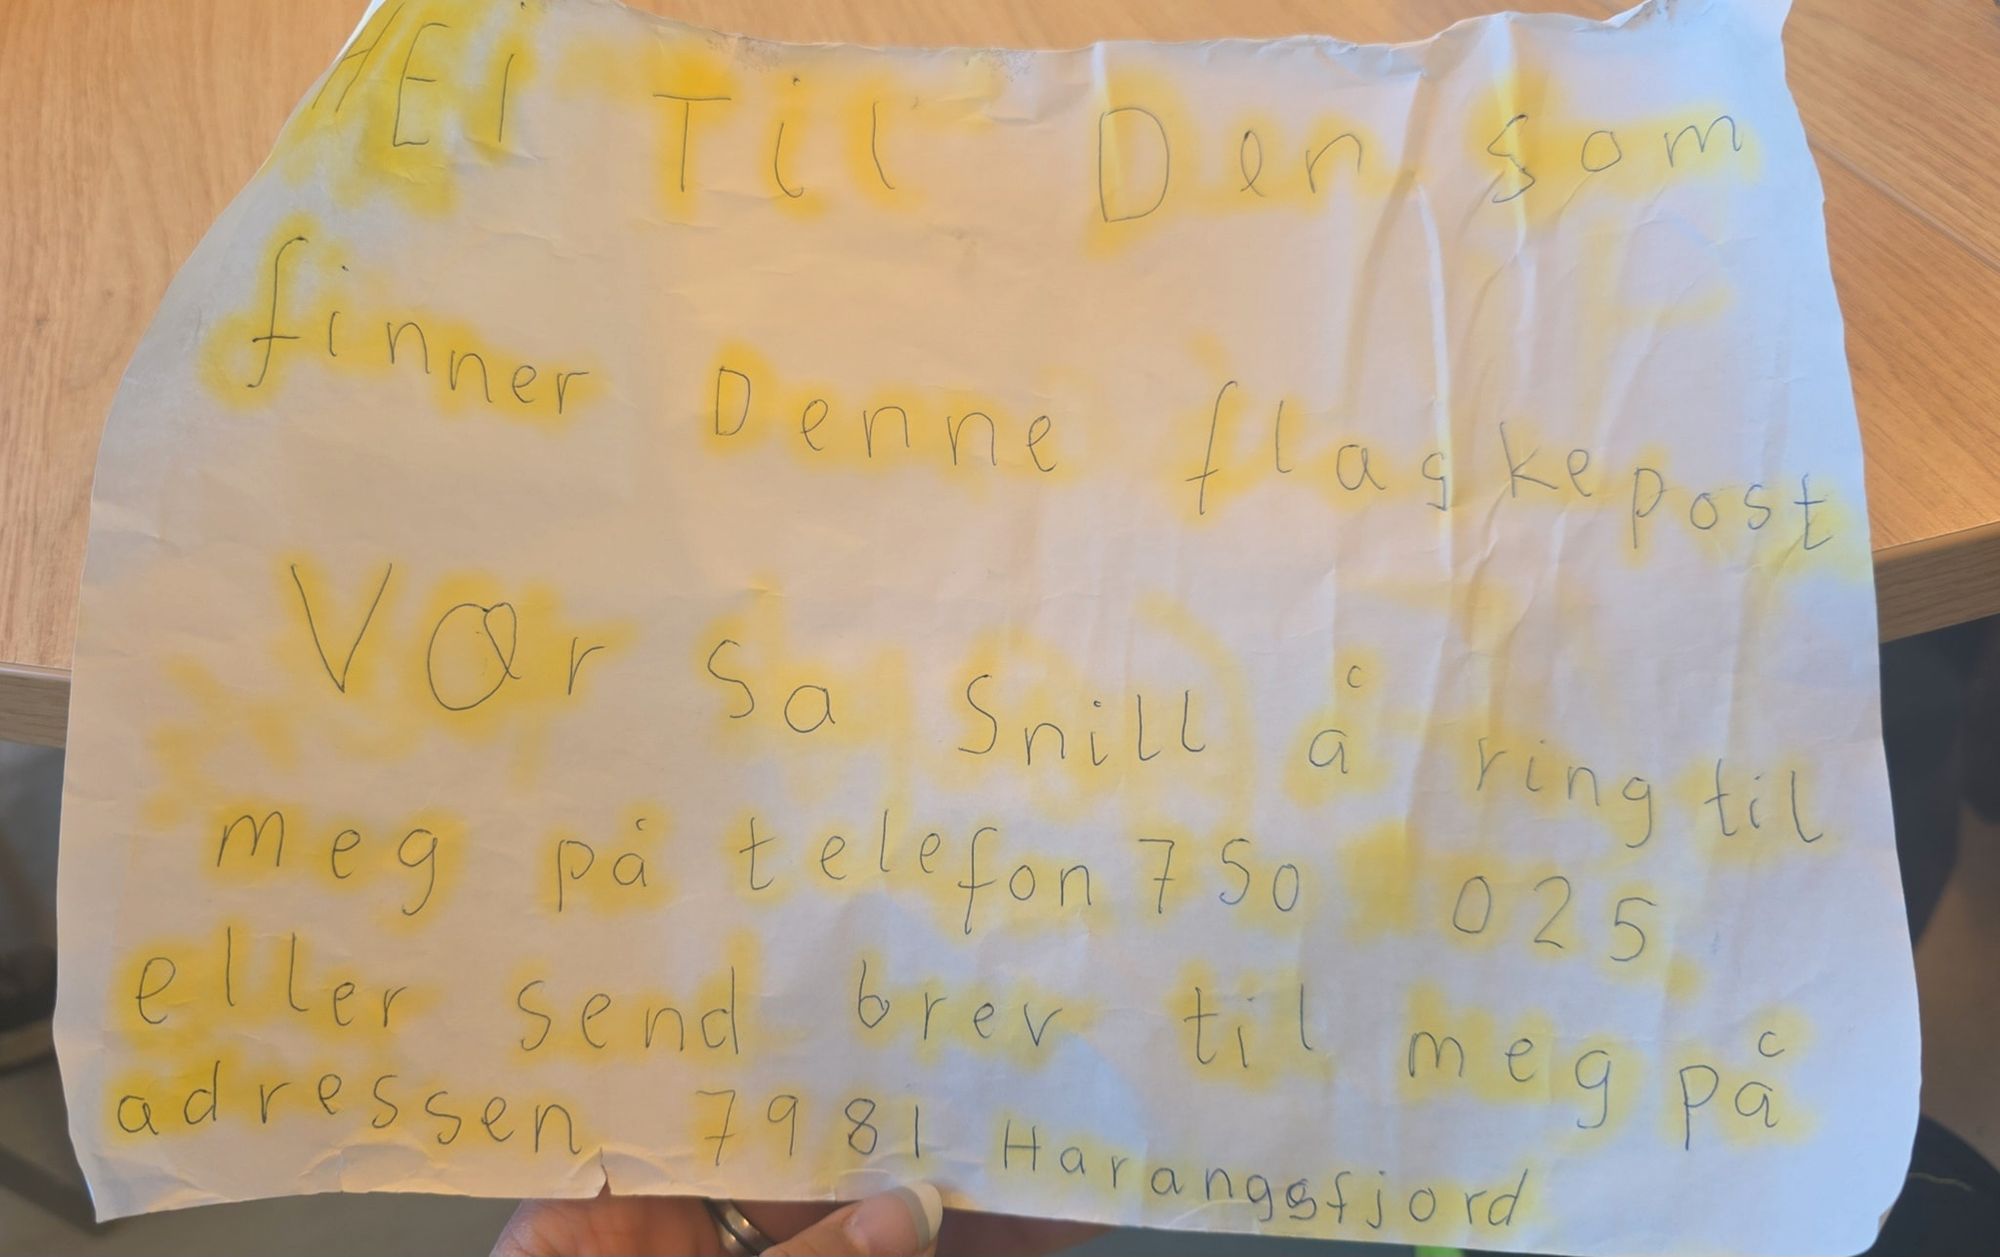 HEI Til Den som
finner Denne flaskepost
Vær sa Snill å ring til
meg på telefon 750 025
eller send brev til meg på
adressen 7981 Harangsfjord